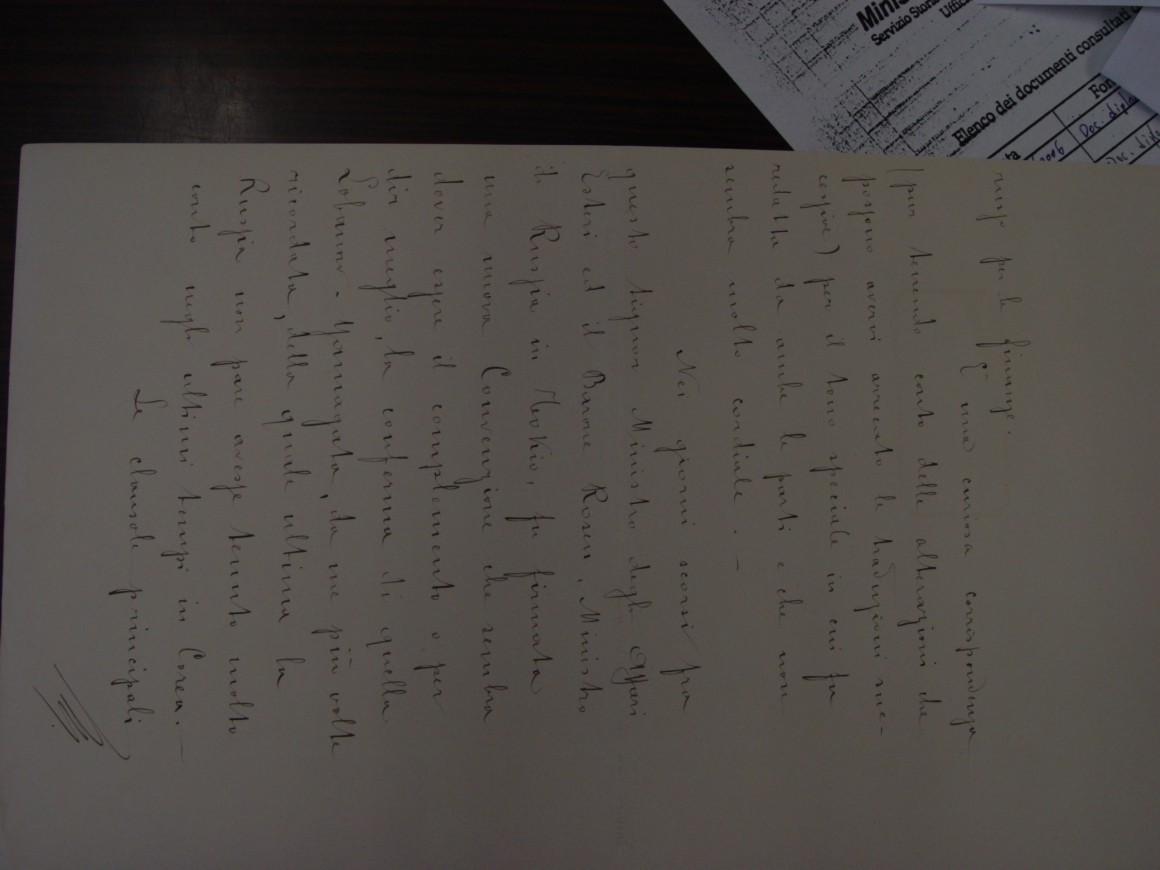 russo per le finanze.
È una curiosa corrispondenza
(pur tenendo conto delle alterazioni che
possono avervi arrecato le traduzioni suc-
cessive) per il tono speciale in cui fu
redatta da ambe le parti e che non
sembra molto cordiale. —
Nei giorni scorsi fra
questo Signor Ministro degli Affari
Esteri ed il Barone Rosen, Ministro
di Russia in Tokio, fu firmata
una nuova Convenzione che sembra
dover essere il complemento o per
dir meglio, la conferma di quella
Lobanow-Yamagata, da me più volte
ricordata, della quale ultima la
Russia non pare avesse tenuto molto
conto negli ultimi tempi in Corea. —
Le clausole principali
Servizio Stori
Uffic
Elenco dei documenti consultati
Doc. dipl
Doc. dipl